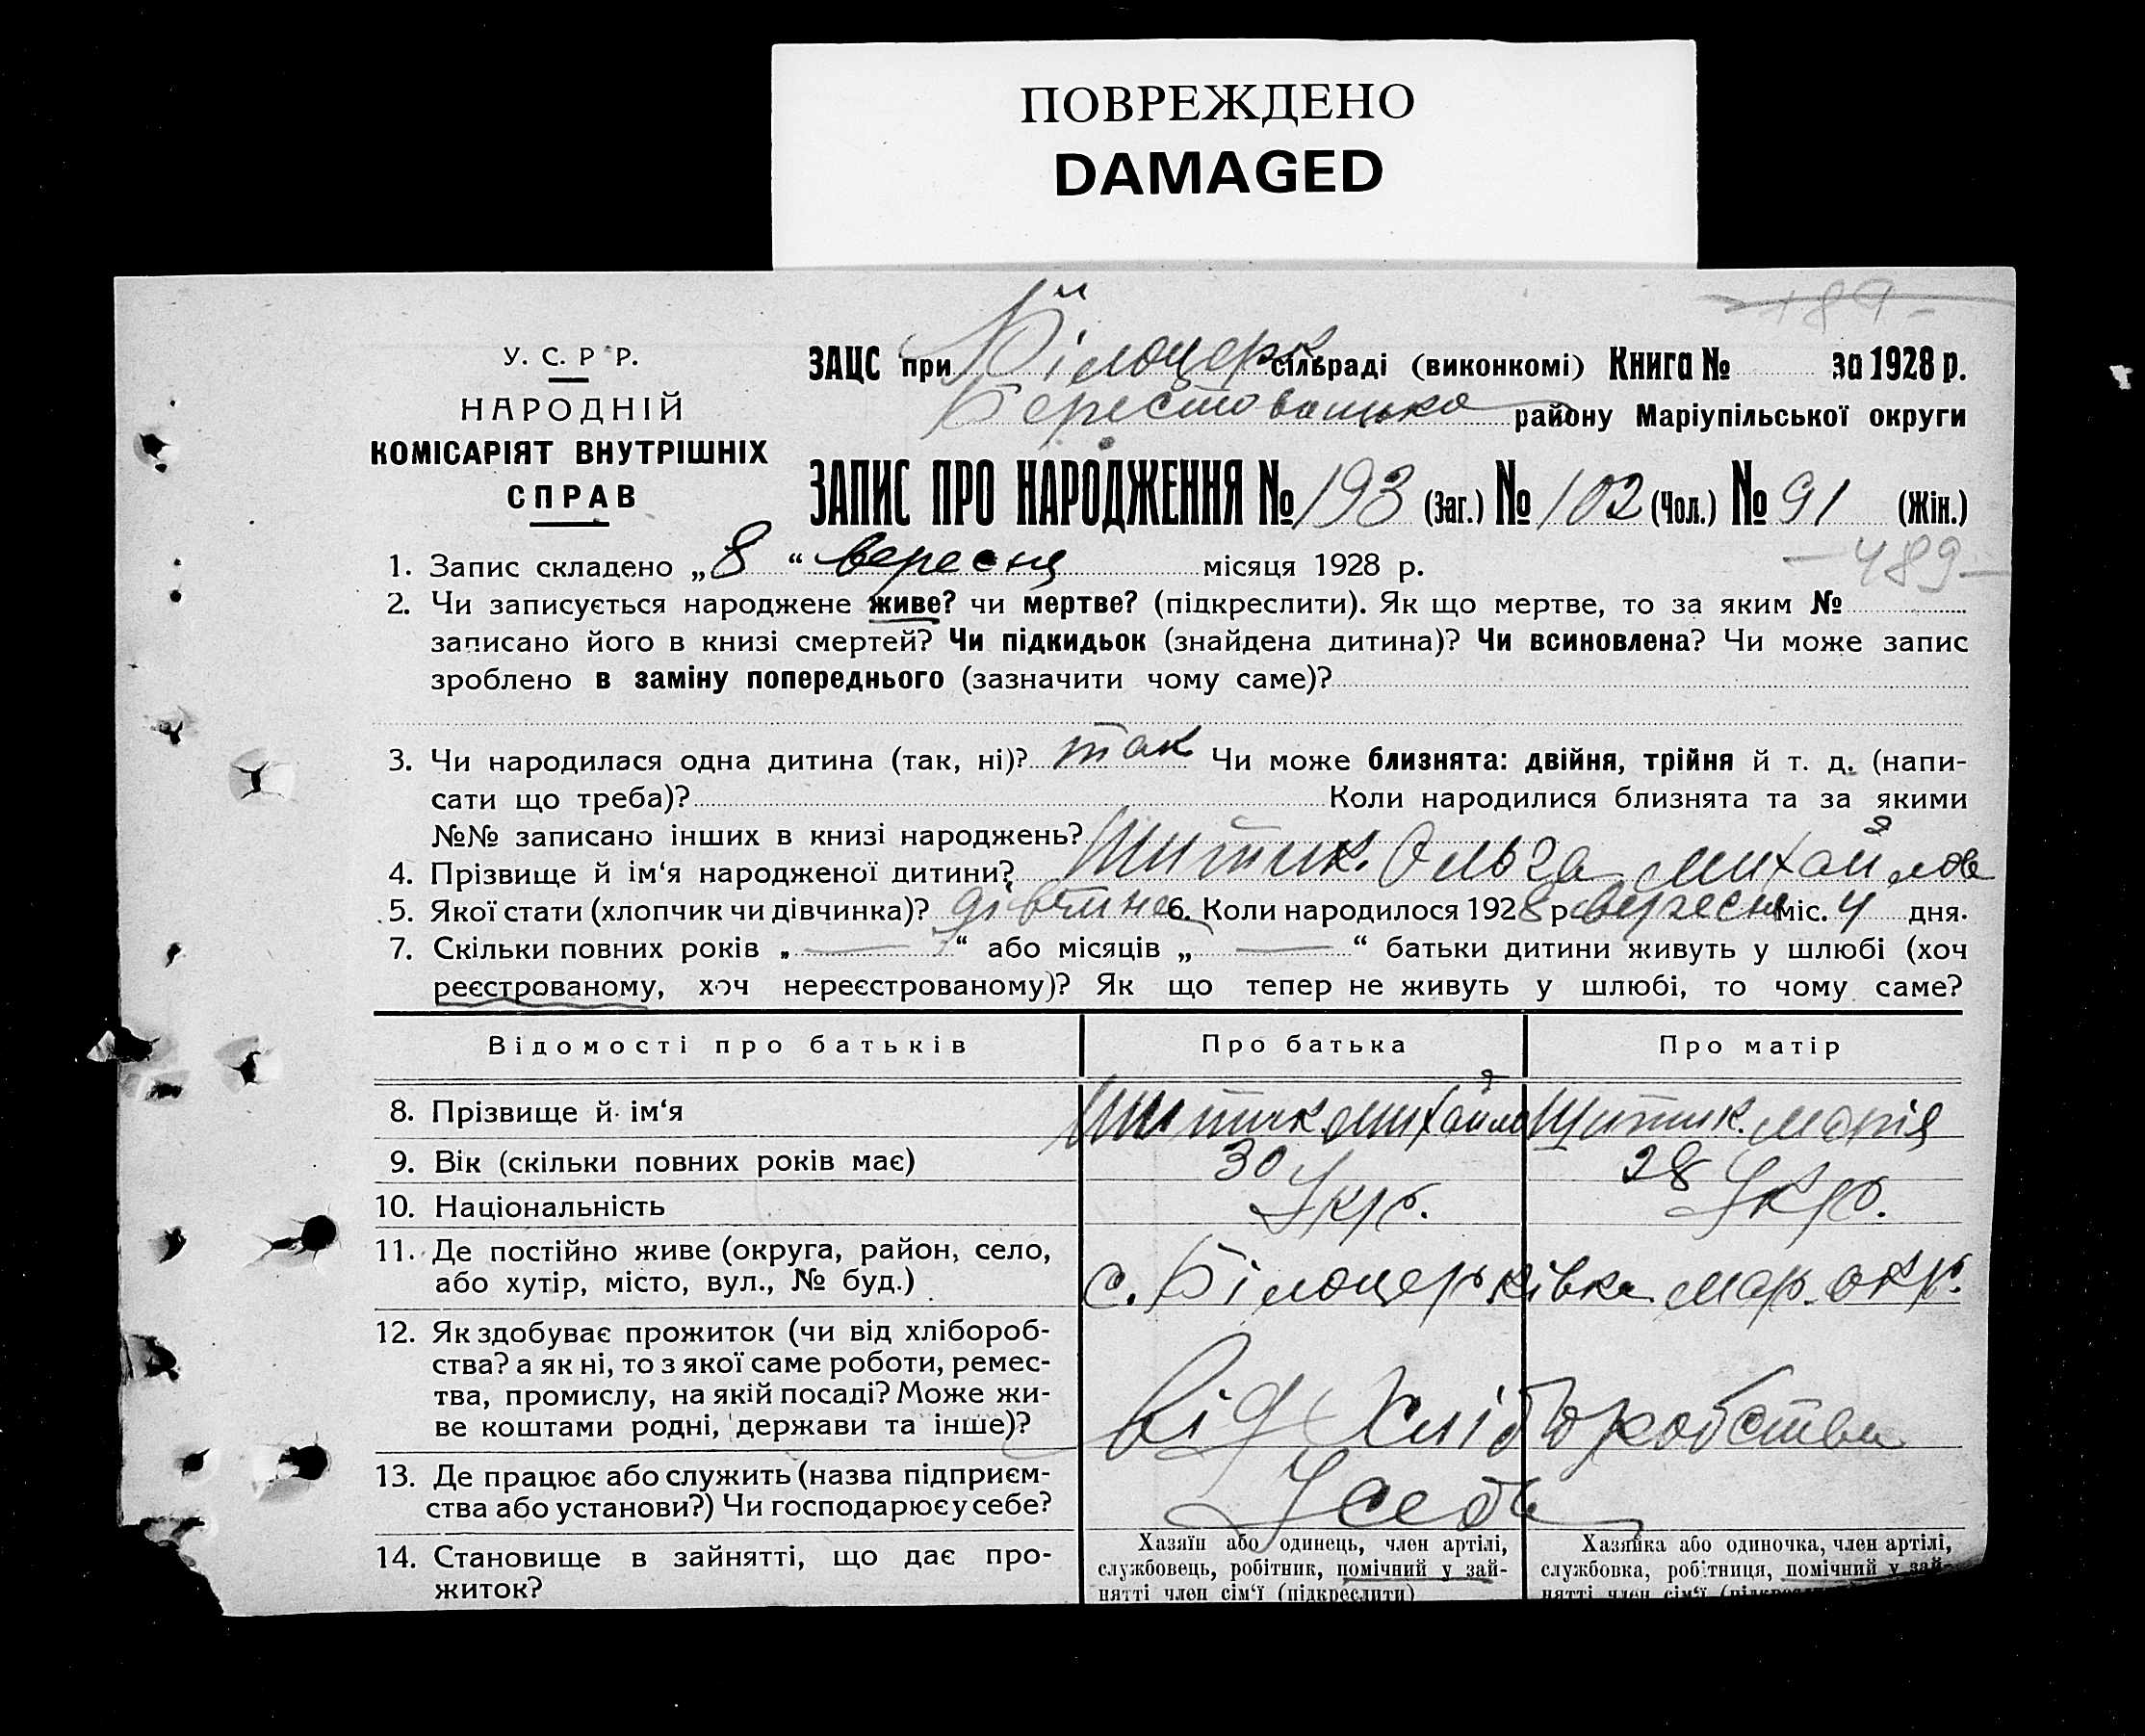 ПОВРЕЖДЕНО
DAMAGED
У. С. Р Р.
НАРОДНІЙ
КОМІСАРІЯТ ВНУТРІШНІХ
СПРАВ
ЗАЦС при Білоцерк. сільраді (виконкомі) Книга № за 1928 р.
Берестоватського району Маріупільської округи
ЗАПИС ПРО НАРОДЖЕННЯ № 193 (Заг.) № 102 (Чол.) № 91 (Жін.)
- 489 -
1. Запис складено „8“ вересня місяця 1928 р.
2. Чи записується народжене живе? чи мертве? (підкреслити). Як що мертве, то за яким №
записано його в книзі смертей? Чи підкидьок (знайдена дитина)? Чи всиновлена? Чи може запис
зроблено в заміну попереднього (зазначити чому саме)?
3. Чи народилася одна дитина (так, ні)? так Чи може близнята: двійня, трійня й т. д. (напи-
сати що треба)? Коли народилися близнята та за якими
№№ записано інших в книзі народжень?
4. Прізвище й ім‘я народженої дитини? Шитик. Ольга Михайлов
5. Якої стати (хлопчик чи дівчинка)? дівчина 6. Коли народилося 1928 р. вересня міс. 4 дня.
7. Скільки повних років „ — “ або місяців „ — “ батьки дитини живуть у шлюбі (хоч
реєстрованому, хоч нереєстрованому)? Як що тепер не живуть у шлюбі, то чому саме?
Відомості про батьків Про батька Про матір
8. Прізвище й ім‘я Шитик Михайло Шитик. Марія
9. Вік (скільки повних років має) 30 28
10. Національність Укр. Укр.
11. Де постійно живе (округа, район, село,
або хутір, місто, вул., № буд.) с. Білоцерківка Мар. окр.
12. Як здобуває прожиток (чи від хлібороб-
ства? а як ні, то з якої саме роботи, ремес-
тва, промислу, на якій посаді? Може жи-
ве коштами родні, держави та інше)? Від Хліборобства
13. Де працює або служить (назва підприєм-
ства або установи?) Чи господарює у себе? У себе
14. Становище в зайнятті, що дає про-
житок?
Хазяїн або одинець, член артілі,
службовець, робітник, помічний у зай-
нятті член сім‘ї (підкреслити)
Хазяйка або одиночка, член артілі,
службовка, робітниця, помічний у зай-
нятті член сім‘ї